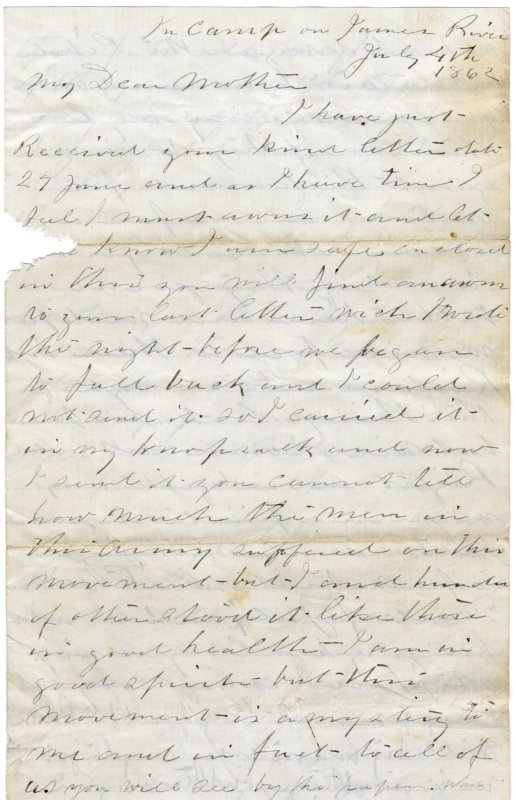 In Camp on James River
July 4th
1862
My Dear Mother
I have just
Received your kind letter date
29 June and as I have time I
feel I must awns it and let
know I am safe enclosed
in this you will find an awns
to your last letter wich I wrote
the night before we began
to fall back and I could
not send it so I carried it
in my knapsack and now
I send it you cannot tell
how much the men in
this army suffered on this
movement but I and hundr
of other stood it like those
in good health I am in
good spirits but this
movement is a mystery to
me and in fact to all of
us you will see by the paper